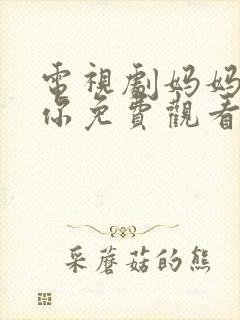 電視劇妈妈
你免費觀看
采蘑菇的熊